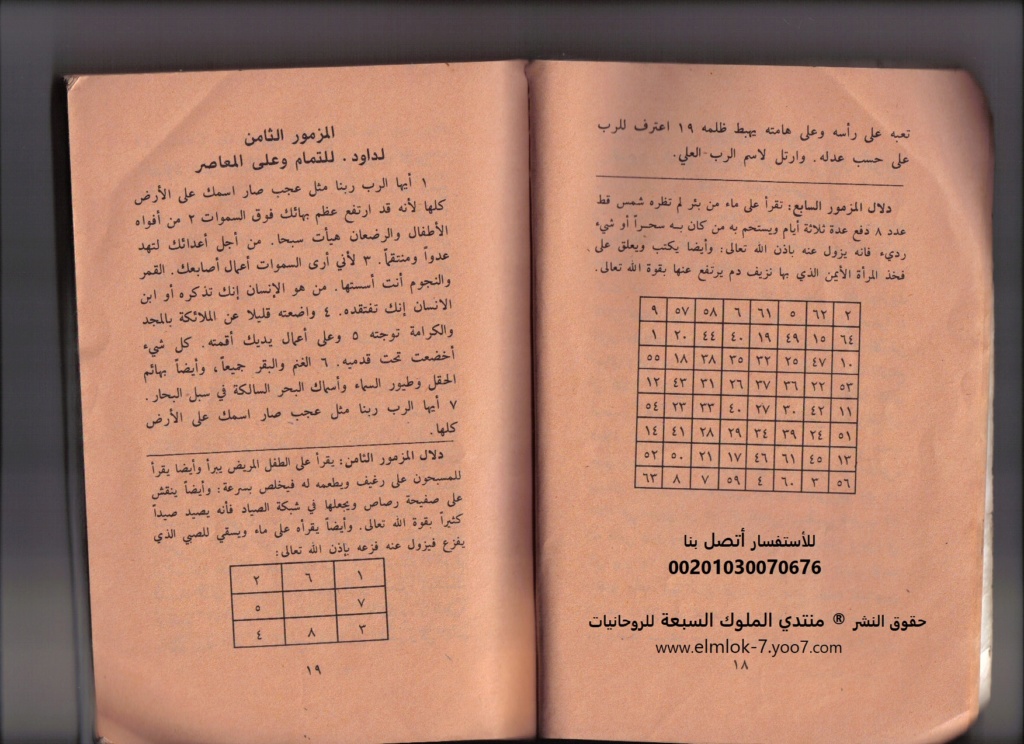 تعبه على رأسه وعلى هامته يهبط ظلمه ١٩ اعترف للرب
على حسب عدله. وارتل لاسم الرب العلي.
دلال المزمور السابع: تقرأ على ماء من بئر لم تظره شمس قط
عدد ٨ دفع عدة ثلاثة أيام ويستحم به من كان به سحراً أو شيء
رديء فانه يزول عنه باذن الله تعالى: وأيضا يكتب ويعلق على
فخذ المرأة الأيمن الذي بها نزيف دم يرتفع عنها بقوة الله تعالى.
٢ ٦٢ ٥ ٦١ ٦ ٥٨ ٥٧ ٩
٦٤ ١٥ ٤٩ ١٩ ٤٠ ٤٤ ٢٠ ١
١٠ ٤٧ ٢٥ ٣٢ ٣٥ ٣٨ ١٨ ٥٥
٥٣ ٢٢ ٣٦ ٣٧ ٢٦ ٣١ ٤٣ ١٢
١١ ٤٢ ٣٠ ٢٧ ٤٠ ٣٣ ٢٣ ٥٤
٥١ ٢٤ ٣٩ ٣٤ ٢٩ ٢٨ ٤١ ١٤
١٣ ٤٥ ٦١ ٤٦ ١٧ ٢١ ٥٠ ٥٢
٥٦ ٣ ٦٠ ٤ ٥٩ ٧ ٨ ٦٣
للأستفسار أتصل بنا
00201030070676
حقوق النشر ® منتدي الملوك السبعة للروحانيات
www.elmlok-7.yoo7.com
١٨
المزمور الثامن
لداود. للتمام وعلى المعاصر
١ أيها الرب ربنا مثل عجب صار اسمك على الأرض
كلها لأنه قد ارتفع عظم بهائك فوق السموات ٢ من أفواه
الأطفال والرضعان هيأت سبحا. من أجل أعدائك لتهد
عدواً ومنتقماً. ٣ لأني أرى السموات أعمال أصابعك. القمر
والنجوم أنت أسستها. من هو الإنسان إنك تذكره أو ابن
الانسان إنك تفتقده. ٤ واضعته قليلا عن الملائكة بالمجد
والكرامة توجته ٥ وعلى أعمال يديك أقمته. كل شيء
أخضعت تحت قدميه. ٦ الغنم والبقر جميعاً، وأيضاً بهائم
الحقل وطيور السماء وأسماك البحر السالكة في سبل البحار.
٧ أيها الرب ربنا مثل عجب صار اسمك على الأرض
كلها.
دلال المزمور الثامن: يقرأ على الطفل المريض يبرأ وأيضا يقرأ
للمسبحون على رغيف ويطعمه له فيخلص بسرعة: وأيضاً ينقش
على صفيحة رصاص ويجعلها في شبكة الصياد فأنه يصيد صيداً
كثيراً بقوة الله تعالى. وأيضاً يقرأه على ماء ويسقي للصبي الذي
يفزع فيزول عنه فزعه بإذن الله تعالى:
١ ٦ ٢
٧ ٥
٣ ٨ ٤
١٩